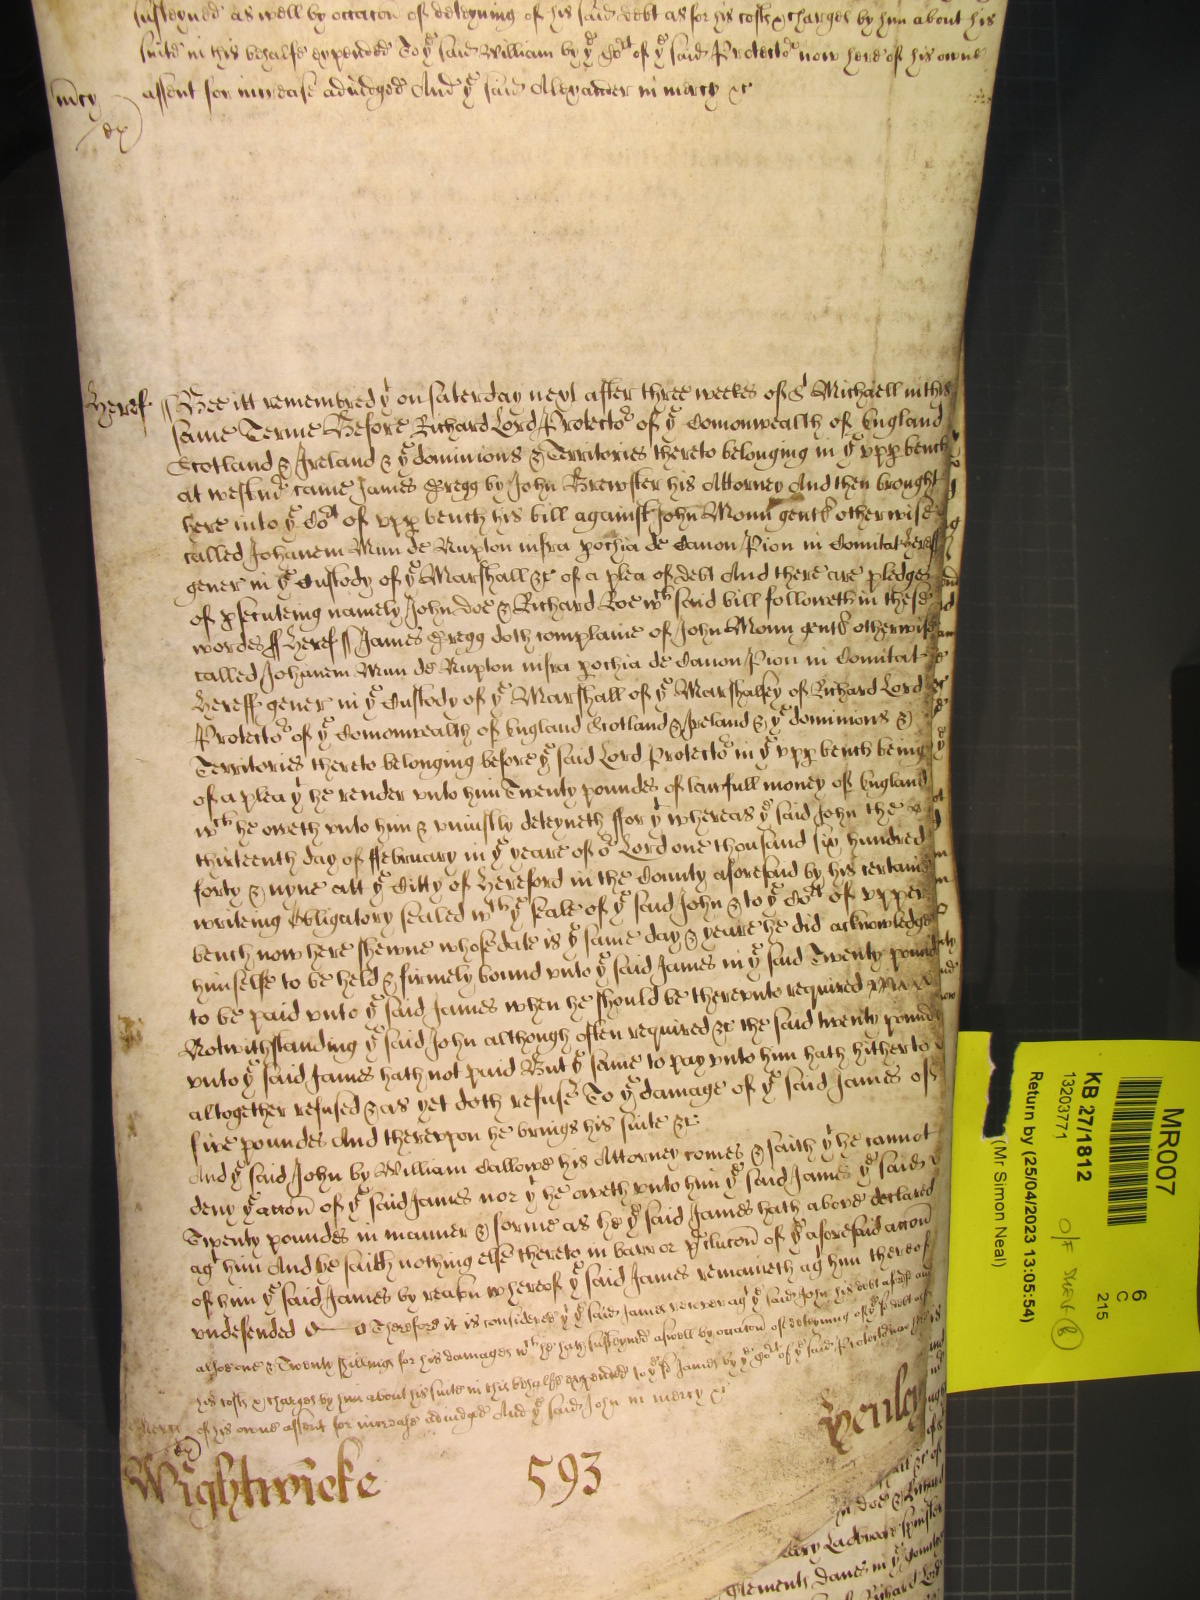 susteyned as well by occacon of deteyning of his said debt as for his costs & charges by him about his
suite in this behalfe expended To yᵉ said William by yᵉ Coʳᵗ of yᵉ said Protectoʳ now here of his owne
assent for increase adiudged And yᵉ said Alexander in mercy &c
mercy
Heref // Bee itt remembred yᵗ on saterday next after three weekes of Sᵗ Michaell in this
same Terme Before Richard Lord Protectoʳ of yᵉ Comonwealth of England
Scotland & Ireland & yᵉ dominions & Territories thereto belonging in yᵉ vpp bench
at westmʳ came James Gregg by John Brewster his Attorney And then brought
here into yᵉ Coʳᵗ of vpp bench his bill against John Monn gentᵗ otherwise
called Johanem Mun de Nupton infra pochia de Canon Pion in Comitat Hereff
gener in yᵉ Custody of yᵉ Marshall &c of a plea of debt And there are pledges
of psecuteing namely John doe & Richard Roe wᶜʰ said bill followeth in these
wordes // Heref // James Gregg doth complaine of John Monn gentᵗ otherwise
called Johanem Mun de Nupton infra pochia de Canon Pion in Comitat
Hereff gener in yᵉ Custody of yᵉ Marshall of yᵉ Marshalsey of Richard Lord
Protectoʳ of yᵉ Comonwealth of England Scotland & Ireland & yᵉ dominions &
Territories thereto belonging before yᵉ said Lord Protectoʳ in yᵉ vpp bench being
of a plea yᵗ he render vnto him Twenty poundes of lawfull money of England
wᶜʰ he oweth vnto him & vniustly deteyneth ffor yᵗ whereas yᵉ said John the
thirteenth day of ffebruary in yᵉ yeare of oʳ Lord one thousand six hundred
forty & nyne att yᵉ Citty of Hereford in the County aforesaid by his certaine
writeing Obligatory sealed wᵗʰ yᵉ seale of yᵉ said John & to yᵉ Coʳᵗ of vpper
bench now here shewne whose date is yᵉ same day & yeare he did acknowledge
himselfe to be held & firmely bound vnto yᵉ said James in yᵉ said Twenty pound
to be paid vnto yᵉ said James when he should be therevnto required
Notwithstanding yᵉ said John although often required &c the said twenty pound
vnto yᵉ said James hath not paid But yᵉ same to pay vnto him hath hitherto
altogether refused & as yet doth refuse To yᵉ damage of yᵉ said James of
five poundes And therevpon he brings his suite &c
And yᵉ said John by William Callowe his Attorney comes & saith yᵗ he cannot
deny yᵉ accon of yᵉ said James nor yᵗ he oweth vnto him yᵉ said James yᵉ said
Twenty poundes in manner & forme as he yᵉ said James hath above declared
agᵗ him And he saith nothing else thereto in barr or pclucon of yᵉ aforesaid accon
of him yᵉ said James by reason whereof yᵉ said James remaineth agᵗ him thereof
vndefended &c Therefore it is considered yᵗ yᵉ said James recover agᵗ yᵉ said John his debt aforesᵈ and
also one & Twenty shillings for his damages wᶜʰ he hath susteyned aswell by occacon of deteyning of yᵉ sᵈ debt as for
his costs & charges by him about his suite in this behalfe expended to yᵉ sᵈ James by yᵉ Coʳᵗ of yᵉ said Protectoʳ now here
of his owne assent for increase adiudged And yᵉ said John in mercy &c
Wightwicke 593 Henley
doe & Richard
Clements danes in yᵉ County
MR007
KB 27/1812
13203771
Return by (25/04/2023 13:05:54)
(Mr Simon Neal)
6
C
215